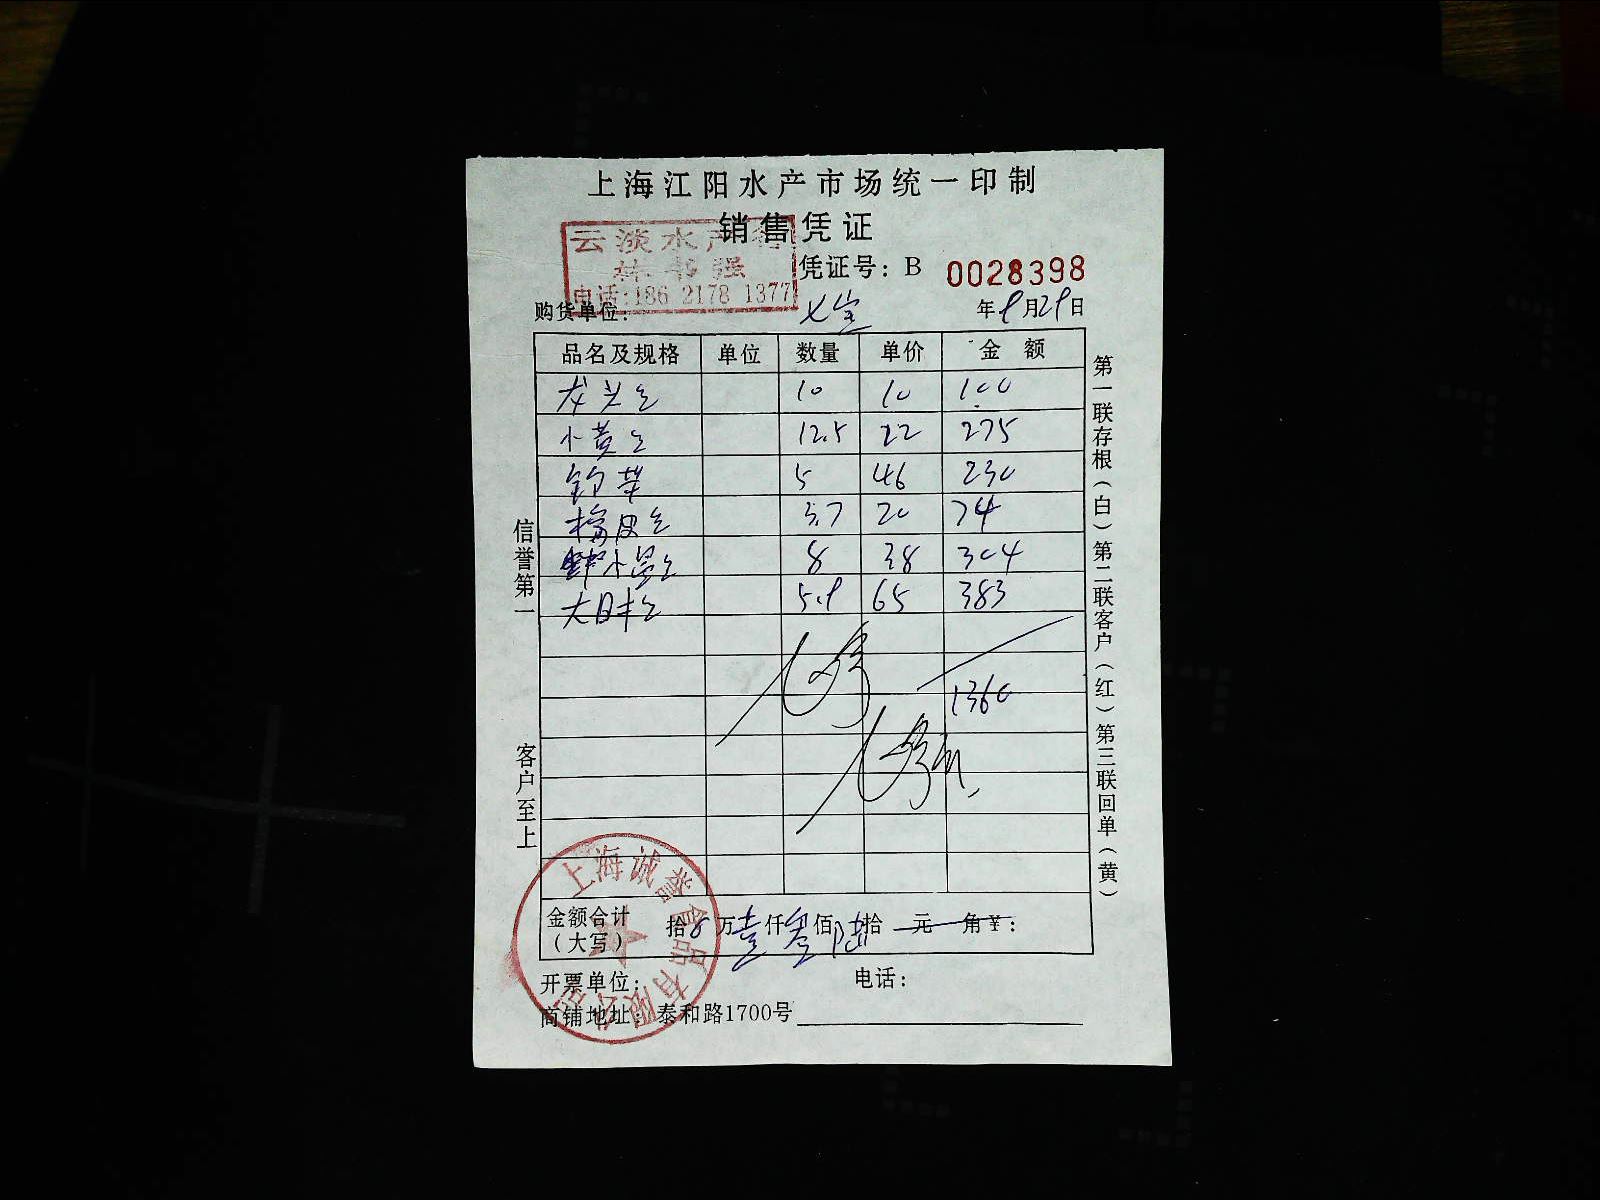 上海江阳水产市场统一印制
销售凭证
云淡水产行
林书强
电话:186 2178 1377
凭证号: B 0028398
购货单位: 七宝 年9月29日
品名及规格 单位 数量 单价 金额
龙头鱼 10 10 100
小黄鱼 12.5 22 275
5 46 230
橡皮鱼 3.7 20 74
8 38 304
5.9 65 383
1360
金额合计(大写) 拾 万壹仟叁佰陆拾 元 角¥:
开票单位: 电话:
商铺地址: 泰和路1700号
上海诚誉食品有限公司
信誉第一 客户至上
第一联存根(白)第二联客户(红)第三联回单(黄)